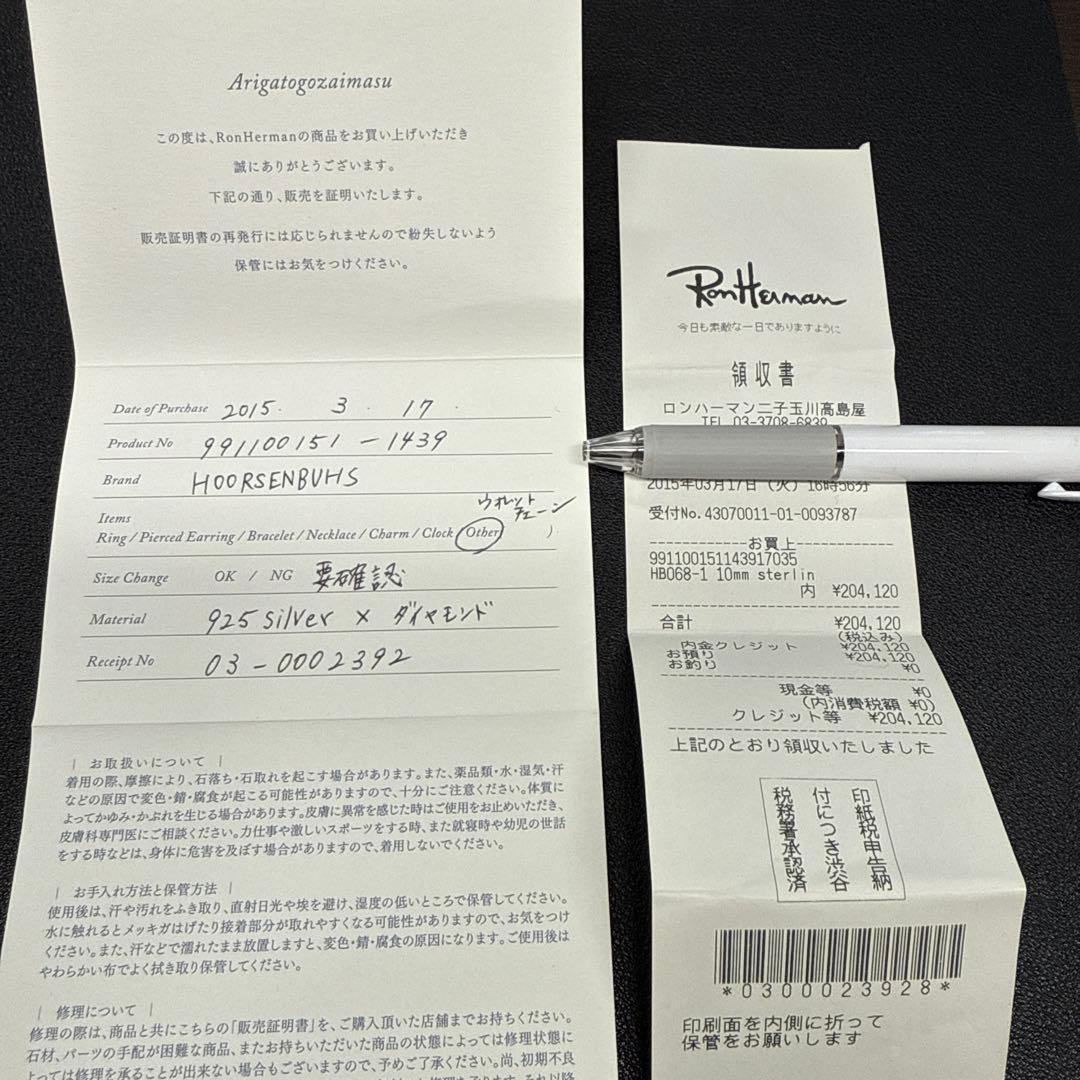 Arigatogozaimasu
この度は、RonHermanの商品をお買い上げいただき
誠にありがとうございます。
下記の通り、販売を証明いたします。
販売証明書の再発行には応じられませんので紛失しないよう
保管にはお気をつけください。
Date of Purchase 2015. 3. 17.
Product No 991100151-1439
Brand HOORSENBUHS
Items
ウォレットチェーン
Ring / Pierced Earring / Bracelet / Necklace / Charm / Clock Other )
Size Change OK / NG 要確認
Material 925 silver × ダイヤモンド
Receipt No 03-0002392
| お取扱いについて |
着用の際、摩擦により、石落ち・石取れを起こす場合があります。また、薬品類・水・湿気・汗
などの原因で変色・錆・腐食が起こる可能性がありますので、十分にご注意ください。体質に
よってかゆみ・かぶれを生じる場合があります。皮膚に異常を感じた時はご使用をお止めいただき、
皮膚科専門医にご相談ください。力仕事や激しいスポーツをする時、また就寝時や幼児の世話
をする時などは、身体に危害を及ぼす場合がありますので、着用しないでください。
| お手入れ方法と保管方法 |
使用後は、汗や汚れをふき取り、直射日光や埃を避け、湿度の低いところで保管してください。
水に触れるとメッキがはげたり接着部分が取れやすくなる可能性がありますので、お気をつけ
ください。また、汗などで濡れたまま放置しますと、変色・錆・腐食の原因になります。ご使用後は
やわらかい布でよく拭き取り保管してください。
| 修理について |
修理の際は、商品と共にこちらの「販売証明書」を、ご購入頂いた店舗までお持ちください。
石材、パーツの手配が困難な商品、またお持ちいただいた商品の状態によっては修理状態に
よっては修理を承ることが出来ない場合もございますので、予めご了承ください。尚、初期不良
RonHerman
今日も素敵な一日でありますように
領収書
ロンハーマン二子玉川高島屋
TEL 03-3708-6839
2015年03月17日(火) 16時56分
受付No.43070011-01-0093787
お買上
991100151143917035
HB068-1 10mm sterlin
内 ¥204,120
合計 ¥204,120
(税込み)
内金クレジット ¥204,120
お預り ¥204,120
お釣り ¥0
現金等 ¥0
(内消費税額 ¥0)
クレジット等 ¥204,120
上記のとおり領収いたしました
印紙税申告納
付につき渋谷
税務署承認済
*0300023928*
印刷面を内側に折って
保管をお願いします